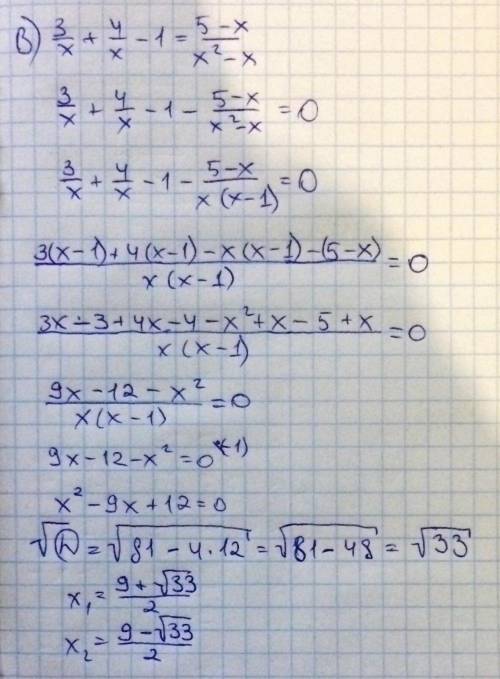 В) 3/x + 4/x - 1 = (5-x)/(x² - x)
3/x + 4/x - 1 - (5-x)/(x² - x) = 0
3/x + 4/x - 1 - (5-x)/(x(x-1)) = 0
(3(x-1) + 4(x-1) - x(x-1) - (5-x))/(x(x-1)) = 0
(3x - 3 + 4x - 4 - x² + x - 5 + x)/(x(x-1)) = 0
(9x - 12 - x²)/(x(x-1)) = 0
9x - 12 - x² = 0 |·(-1)
x² - 9x + 12 = 0
√D = √(81 - 4·12) = √(81 - 48) = √33
x₁ = (9 + √33)/2
x₂ = (9 - √33)/2